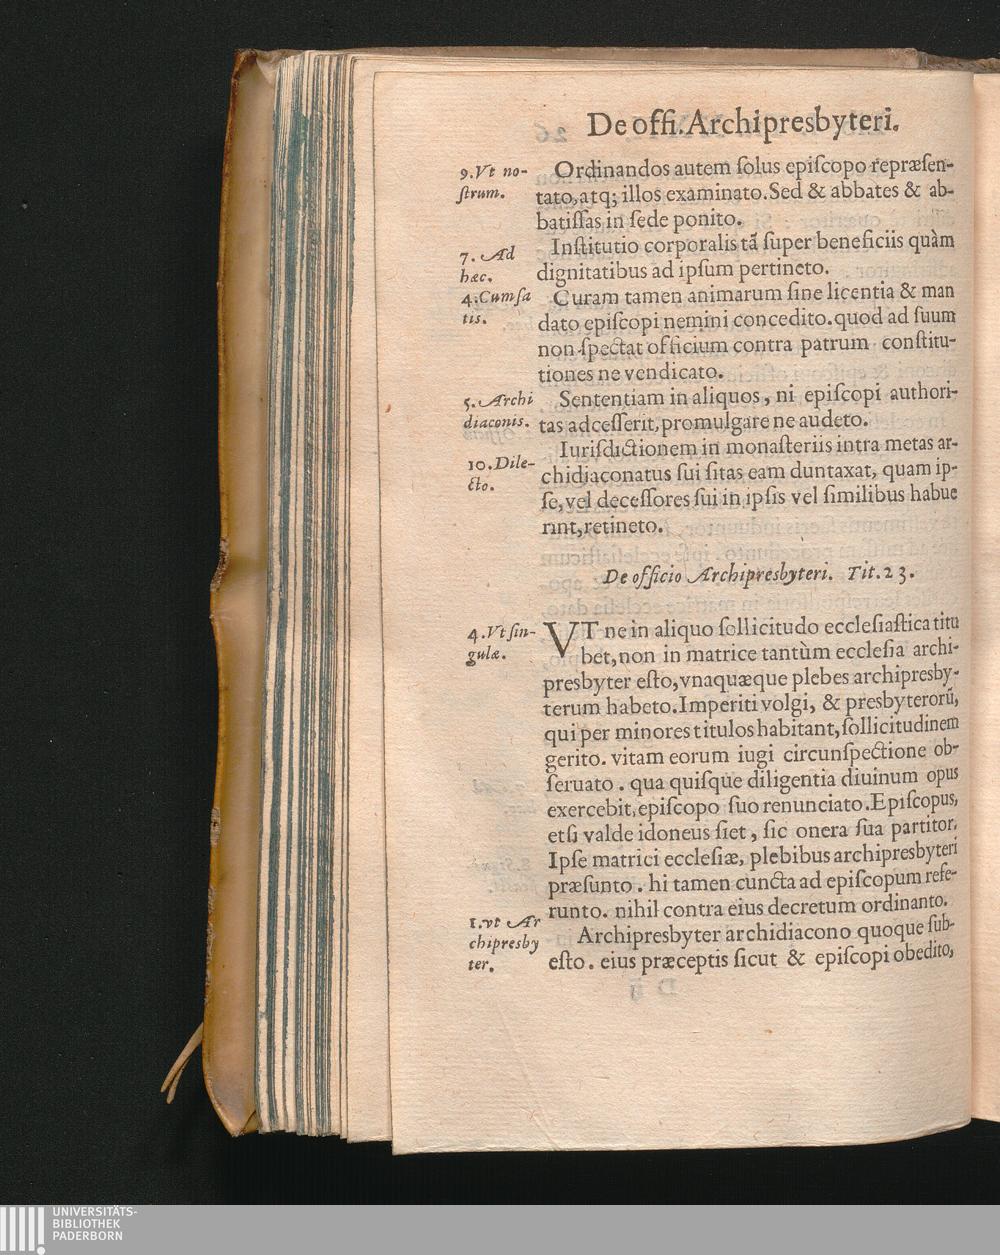 De offi. Archipresbyteri.
9. Vt no-
ſtrum.
Ordinandos autem ſolus epiſcopo repræſen-
tato, atq; illos examinato. Sed & abbates & ab-
batiſſas in ſede ponito.
7. Ad
hæc.
Inſtitutio corporalis tã ſuper beneficiis quàm
dignitatibus ad ipſum pertineto.
4. Cum ſa
tis.
Curam tamen animarum ſine licentia & man
dato epiſcopi nemini concedito. quod ad ſuum
non ſpectat officium contra patrum conſtitu-
tiones ne vendicato.
5. Archi
diaconis.
Sententiam in aliquos, ni epiſcopi authori-
tas adceſſerit, promulgare ne audeto.
10. Dile-
cto.
Iuriſdictionem in monaſteriis intra metas ar-
chidiaconatus ſui ſitas eam duntaxat, quam ip-
ſe, vel deceſſores ſui in ipſis vel ſimilibus habue
rint, retineto.
De officio Archipresbyteri. Tit. 23.
4. Vt ſin-
gulæ.
VT ne in aliquo ſollicitudo eccleſiaſtica titu
bet, non in matrice tantùm eccleſia archi-
presbyter eſto, vnaquæque plebes archipresby-
terum habeto. Imperiti volgi, & presbyterorũ,
qui per minores titulos habitant, ſollicitudinem
gerito. vitam eorum iugi circunſpectione ob-
ſeruato. qua quiſque diligentia diuinum opus
exercebit, epiſcopo ſuo renunciato. Epiſcopus,
etſi valde idoneus ſiet, ſic onera ſua partitor.
Ipſe matrici eccleſiæ, plebibus archipresbyteri
præſunto. hi tamen cuncta ad epiſcopum refe-
runto. nihil contra eius decretum ordinanto.
1. vt Ar
chipresby
ter.
Archipresbyter archidiacono quoque ſub-
eſto. eius præceptis ſicut & epiſcopi obedito,
UNIVERSITÄTS-
BIBLIOTHEK
PADERBORN